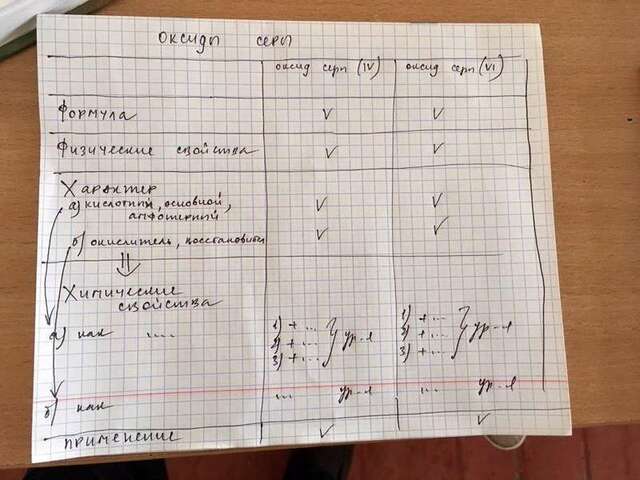 оксиды серы
оксид серы (IV) оксид серы (VI)
Формула V V
Физические свойства V V
Характер
а) кислотный, основной, амфотерный V V
б) окислитель, восстановитель V V
⇓
Химические
свойства
а) как .... 1) + ... 2) + ... 3) + ... } ур-я 1) + ... 2) + ... 3) + ... } ур-я
б) как ... ур-я ... ур-я
применение V V